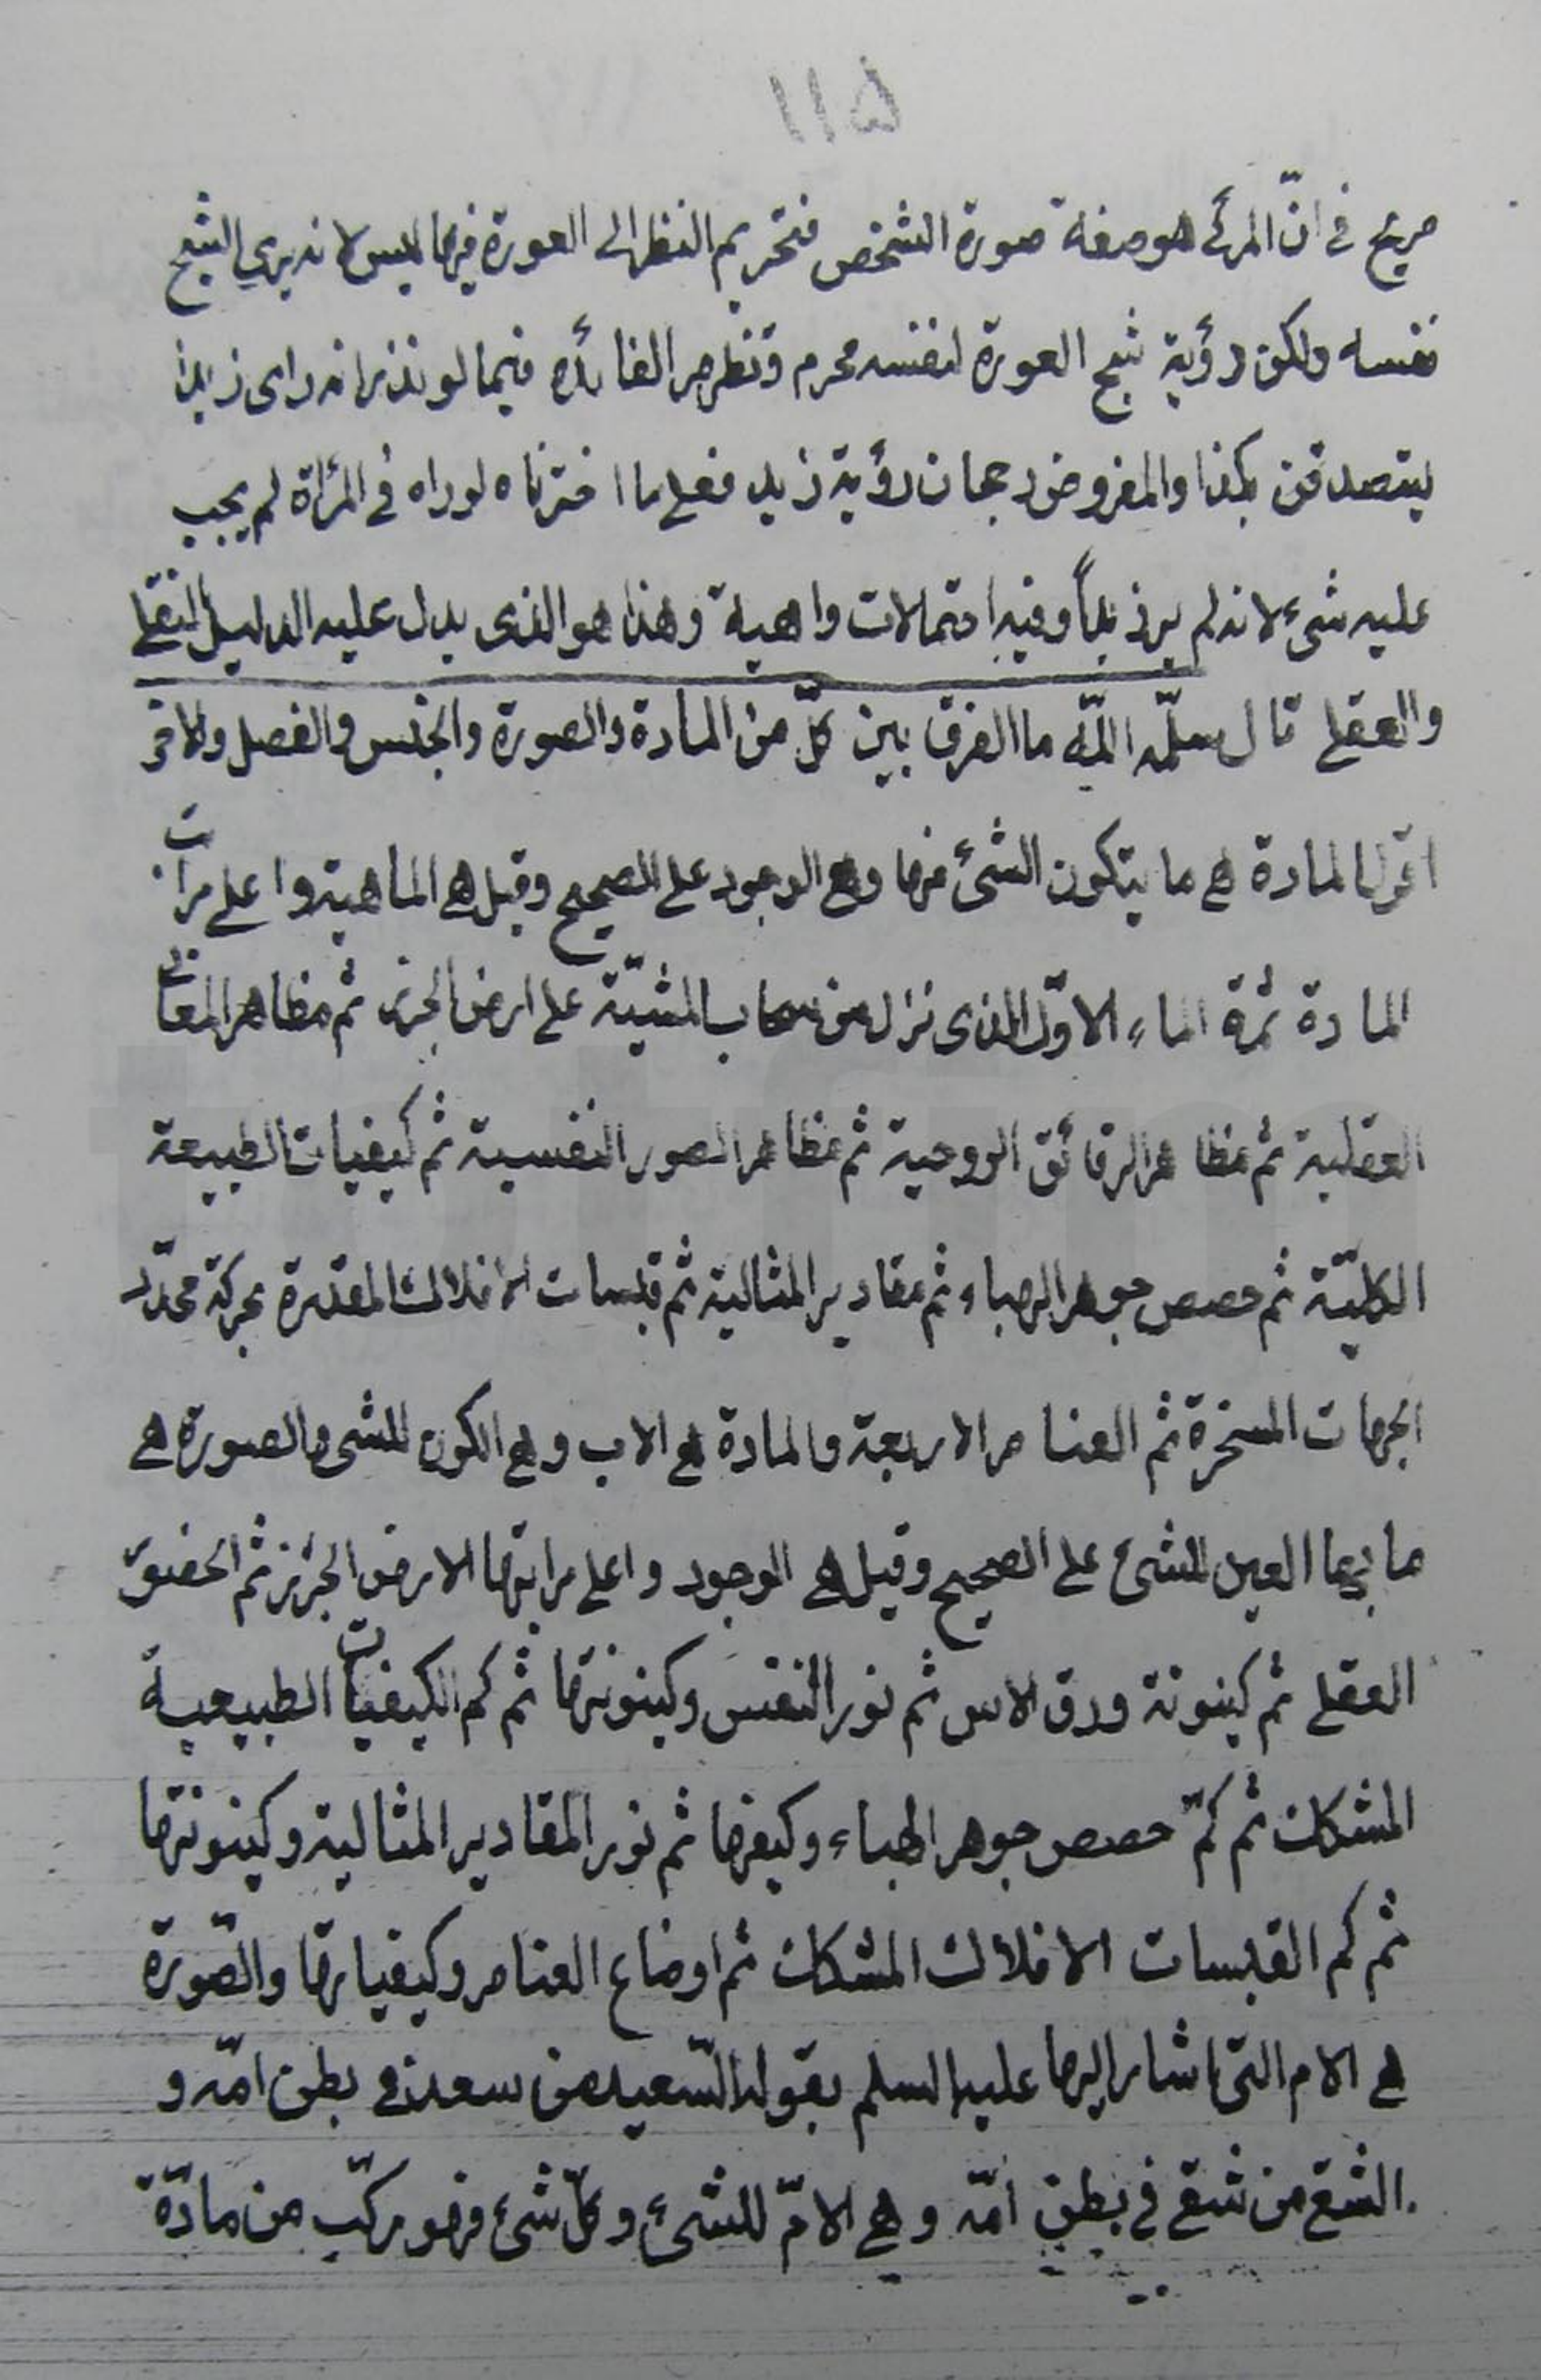 ١١٥
صريح في انّ المرئ هو صفة صورة الشخص فتحريم النظر الى العورة فيها ليس لانه يري الشبح
نفسه ولكن رؤية شبح العورة لنفسه محرم وتظهر الفائدة فيما لو نذر انه راى زيدا
ليتصدقن بكذا والمفروض رجحان رؤية زيد فعلى ما اخترناه لو راه في المرأة لم يجب
عليه شئ لانه لم ير زيداً وفيه احتمالات واهية وهذا هو الذى يدل عليه الدليل النقلي
والعقلي قال سلّمه اللّه ما الفرق بين كلّ من المادة والصورة والجنس والفصل والاخر
اقول المادة هي ما يتكون الشئ منها وهي الوجود على الصحيح وقيل هي الماهية واعلى مراتب
المادة ثمرة الماء الاوّل الذى نزل من سحاب المشيّة على ارض الجرز ثم مظاهر المعانى
العقلية ثم مظاهر الرقائق الروحية ثم مظاهر الصور النفسية ثم كيفيات الطبيعة
الكليّة ثم حصص جوهر الهباء ثم مقادير المثالية ثم قبسات الافلاك المقدرة بحركة محدّد
الجهات المسخرة ثم العناصر الاربعة والمادة هي الاب وهي الكون للشى والصورة هي
ما بها العين للشئ على الصحيح وقيل هي الوجود واعلى مراتبها الارض الجرز ثم
العقلى ثم كينونة ورق الاس ثم نور النفس وكينونتها ثم كم الكيفيات الطبيعية
المشكلات ثم كمّ حصص جوهر الهباء وكيفها ثم نور المقادير المثالية وكينونتها
ثم كم القبسات الافلاك المشكلات ثم اوضاع العناصر وكيفياتها والصّورة
هي الام التى اشار اليها عليه السلم بقوله السّعيد من سعد في بطن امّه و
الشقي من شقي في بطن امّه وهي الامّ للشئ وكلّ شئ فهو مركّب من مادّة